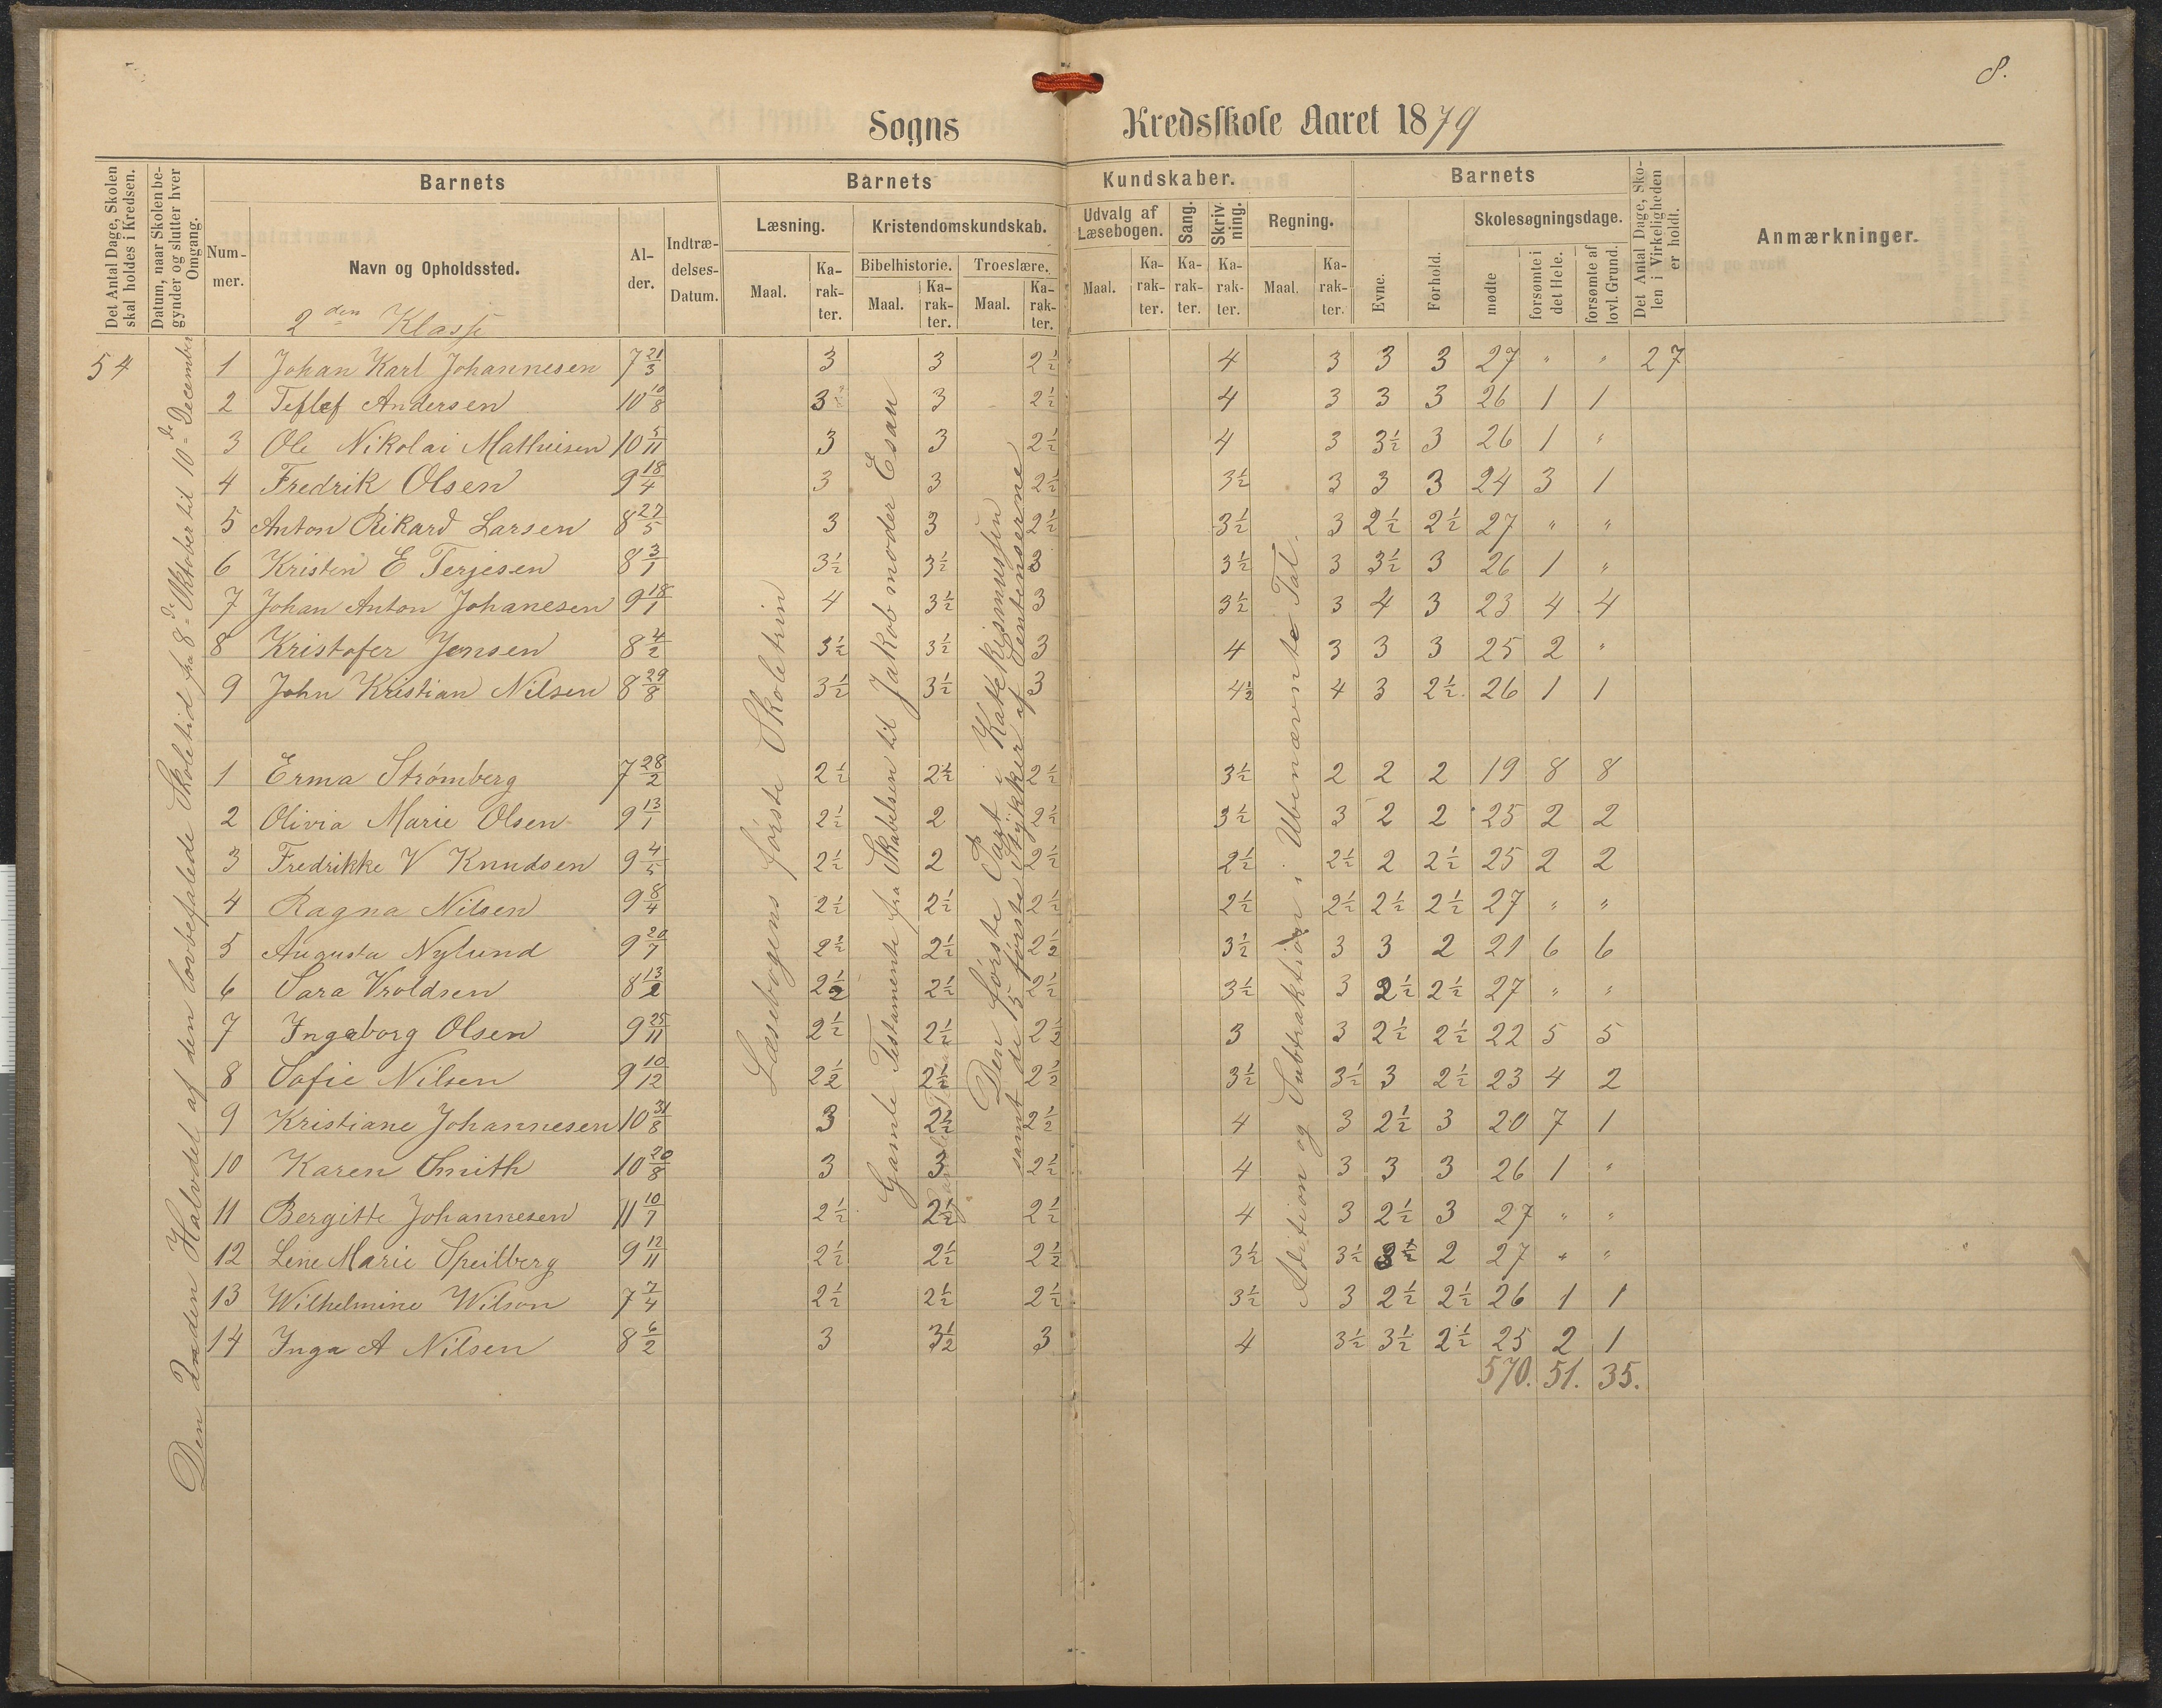 8.
Sogns Kredsskole Aaret 1879
Det Antal Dage, Skolen skal holdes i Kredsen.
Datum, naar Skolen begynder og slutter hver Omgang.
Barnets
Nummer.
Navn og Opholdssted.
Alder.
Indtrædelses-Datum.
Barnets Kundskaber.
Læsning.
Maal.
Karakter.
Kristendomskundskab.
Bibelhistorie.
Maal.
Karakter.
Troeslære.
Maal.
Karakter.
Udvalg af Læsebogen.
Maal.
Karakter.
Sang.
Karakter.
Skrivning.
Karakter.
Regning.
Maal.
Karakter.
Barnets
Evne.
Forhold.
Skolesøgningsdage.
mødte
forsømte i det Hele.
forsømte af lovl. Grund.
Det Antal Dage, Skolen i Virkeligheden er holdt.
Anmærkninger.
2den Klasse
54 1 Johan Karl Johannesen 7 21/3 3 3 2½ 4 3 3 3 27 " " 27
2 Teflef Andersen 10 10/8 3 3 2½ 4 3 3 3 26 1 1
3 Ole Nikolai Mathiesen 10 5/11 3 3 2½ 4 3 3½ 3 26 1 "
4 Fredrik Olsen 9 18/4 3 3 2½ 3½ 3 3 3 24 3 1
5 Anton Rikard Larsen 8 27/5 3 3 2½ 3½ 3 2½ 2½ 27 " "
6 Kristen E Terjesen 8 3/1 3½ 3½ 3 3½ 3 3½ 3 26 1 "
7 Johan Anton Johanesen 9 18/1 4 3½ 3 3½ 3 4 3 23 4 4
8 Kristofer Jensen 8 4/2 3½ 3½ 3 4 3 3 3 25 2 "
9 John Kristian Nilsen 8 29/8 3½ 3½ 3 4½ 4 3 2½ 26 1 1
1 Erma Strømberg 7 28/2 2½ 2½ 2½ 3½ 2 2 2 19 8 8
2 Olivia Marie Olsen 9 13/1 2½ 2 2½ 3½ 3 2 2 25 2 2
3 Fredrikke V Knudsen 9 4/5 2½ 2 2½ 2½ 2½ 2 2½ 25 2 2
4 Ragna Nilsen 9 8/4 2½ 2½ 2½ 2½ 2½ 2½ 2½ 27 " "
5 Augusta Nylund 9 20/7 2½ 2½ 2½ 3½ 3 3 2 21 6 6
6 Sara Vroldsen 8 13/2 2½ 2½ 2½ 3½ 3 2½ 2½ 27 " "
7 Ingeborg Olsen 9 25/11 2½ 2½ 2½ 3 3 2½ 2½ 22 5 5
8 Sofie Nilsen 9 10/12 2½ 2½ 2½ 3½ 3½ 3 2½ 23 4 2
9 Kristiane Johannesen 10 31/8 3 2½ 2½ 4 3 2½ 3 20 7 1
10 Karen Smith 10 20/8 3 3 2½ 4 3 3 3 26 1 "
11 Bergitte Johannesen 11 10/7 2½ 2½ 2½ 4 3 2½ 3 27 " "
12 Line Marie Speilberg 9 12/11 2½ 2½ 2½ 3½ 3½ 3½ 2 27 " "
13 Wilhelmine Wilson 7 7/4 2½ 2½ 2½ 3½ 3 2½ 2½ 26 1 1
14 Inga A Nilsen 8 6/2 3 3½ 3 4 3½ 3½ 2½ 25 2 1
570. 51. 35.
Den 2nden Halvdel af den lovbefalede Skoletid fra 8de Oktober til 10de December
Læsebogens første Skoletrin
Gamle Testamente fra Skabelsen til Jakob moder Esau
Den første Part i Katekismussen
samt de 15 første Stykker af Sentenserne
Adition og Subtraktion i Ubenævnte Tal.